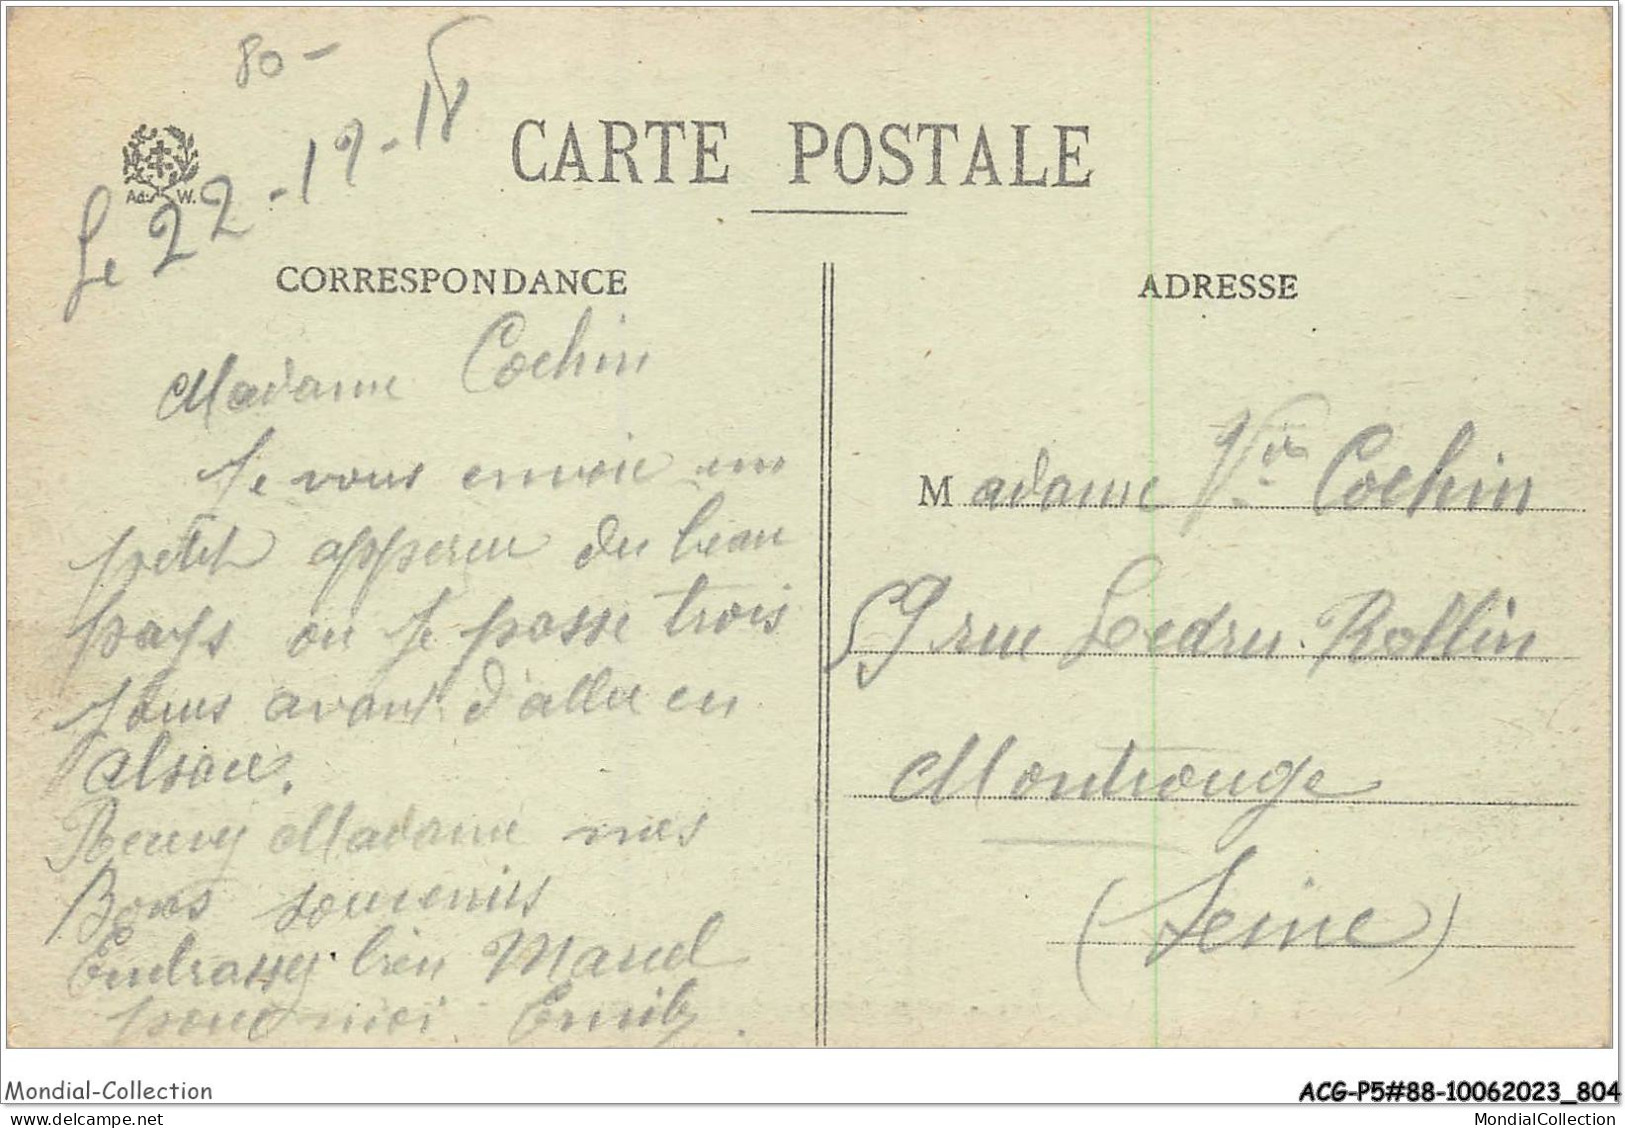 80 -
Le 22-12-18
Ad. W.
CARTE POSTALE
CORRESPONDANCE
ADRESSE
Madame Cochin
Je vous envoie un
petit appercu du beau
pays ou je passe trois
jours avant d'aller en
alsace.
Recevez Madame mes
Bons souvenirs
Embrassez bien Marcel
pour moi Emile.
Madame Vve Cochin
59 rue Ledru-Rollin
Montrouge
(Seine)
Mondial-Collection
ACG-P5#88-10062023_804
MondialCollection